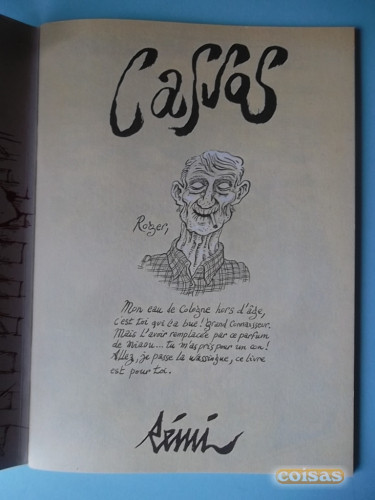 Cassos
Roger,
Mon eau de Cologne hors d'âge,
c'est toi qui l'a bue! Grand connaisseur.
Mais l'avoir remplacée par ce parfum
de Niaou... tu m'as pris pour un con!
Allez, je passe la wassingue, ce livre
est pour toi.
Rémi
coisas